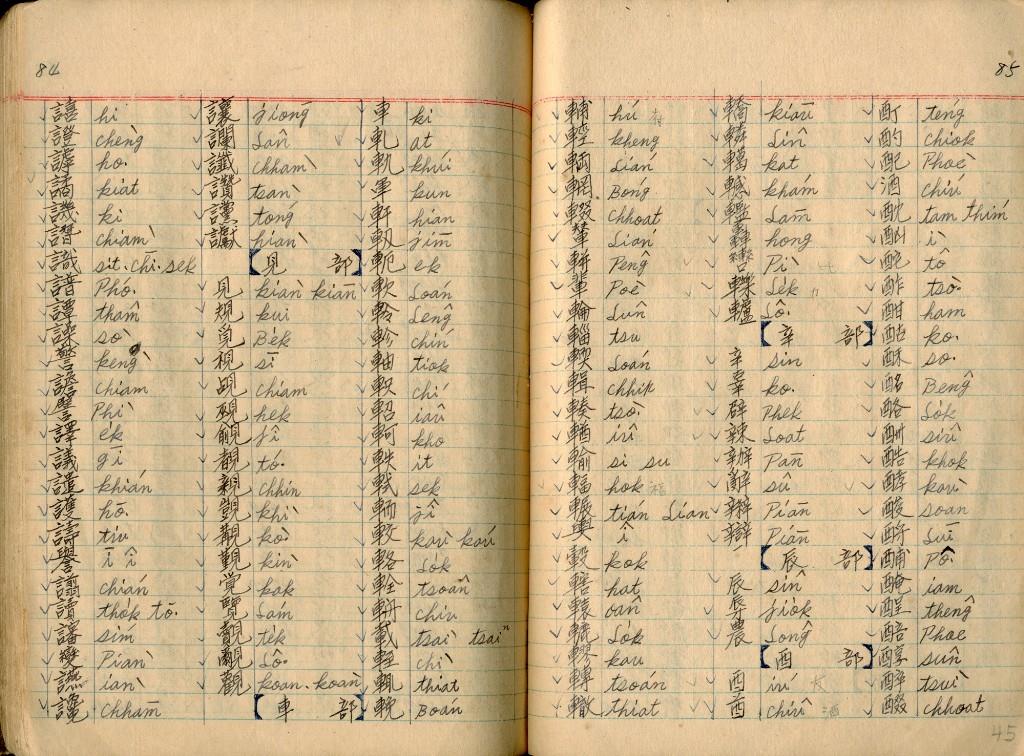 84
譆 hi
證 chèng
謼 ho͘
譎 kiat
譏 ki
譖 chiàm
識 sit. chì. sek
譜 Phó͘
譚 thâm
譟 sò
警 kéng
譫 chiam
譬 Phì
譯 e̍k
議 gī
譴 khián
護 hō͘
譸 tiu
譽 ī î
譾 chián
讀 tho̍k tō͘
讅 sím
變 Piàn
讌 iàn
讒 chhâm
讓 jiōng
讕 lân
讖 chhàm
讚 tsàn
讜 tóng
讞 hiàn
【見 部】
見 kiàn kiān
規 kui
覓 Be̍k
視 sī
覘 chiam
覡 he̍k
覦 jî
覩 tó͘
親 chhin
覬 khì
覯 kò͘
覲 kìn
覚 kak
覽 lám
覿 te̍k
觀 koan. koàn
【車 部】
車 ki
軋 at
軌 khúi
軍 kun
軒 hian
軔 jīm
軛 ek
軟 loán
軨 lêng
軫 chín
軸 tio̍k
軹 chí
軺 iâu
軻 kho
軼 i̍t
軾 sek
較 kàu káu
輅 lō͘k
輇 tsoân
輈 chiu
載 tsài tsáiⁿ
輊 chì
輒 thiat
輓 Boán
85
輔 hú
輕 kheng
輛 lián
輞 Bóng
輟 chhoat
輦 lián
輧 Pêng
輩 Poè
輪 lûn
輜 tsu
輭 loán
輯 chhip
輳 tsò͘
輶 iû
輸 si su
輻 hok
輾 tián lián
輿 î
轂 kok
轄 hat
轅 oân
轆 lo̍k
轉 tsoán
轍 thiat
轎 kiāu
轔 lîn
轗 khám
轞 lām
轟 hong
轡 Pì
轢 le̍k
轤 lô͘
【辛 部】
辛 sin
辜 ko͘
辟 Phek
辣 loat
辦 Pān
辭 sû
辯 Piān
【辰 部】
辰 sîn
辱 jio̍k
農 lông
【酉 部】
酉 iú
酋 chhiû
酊 téng
酌 chiok
配 Phoè
酒 chiú
酖 tam thim
酏 ì
酡 tô
酢 tso͘
酣 ham
酤 ko͘
酥 so͘
酩 Bêng
酪 lo̍k
酬 siû
酷 khok
酵 kàu
酸 soan
酹 lūi
酺 Pô͘
醃 iam
醒 théng
醅 Phoe
醇 sûn
醉 tsuì
醊 chhoat
45